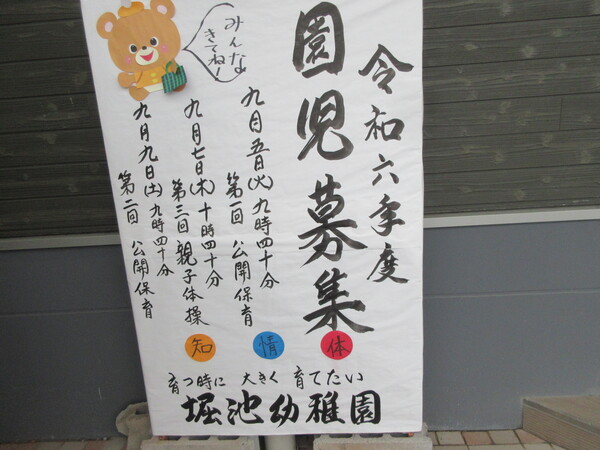 令和六年度
園児募集
みんな
きてね!
九月五日(火)九時四十分
第一回 公開保育
九月七日(木)十時四十分
第三回 親子体操
九月九日(土)九時四十分
第二回 公開保育
知 情 体
育つ時に 大きく 育てたい
堀池幼稚園